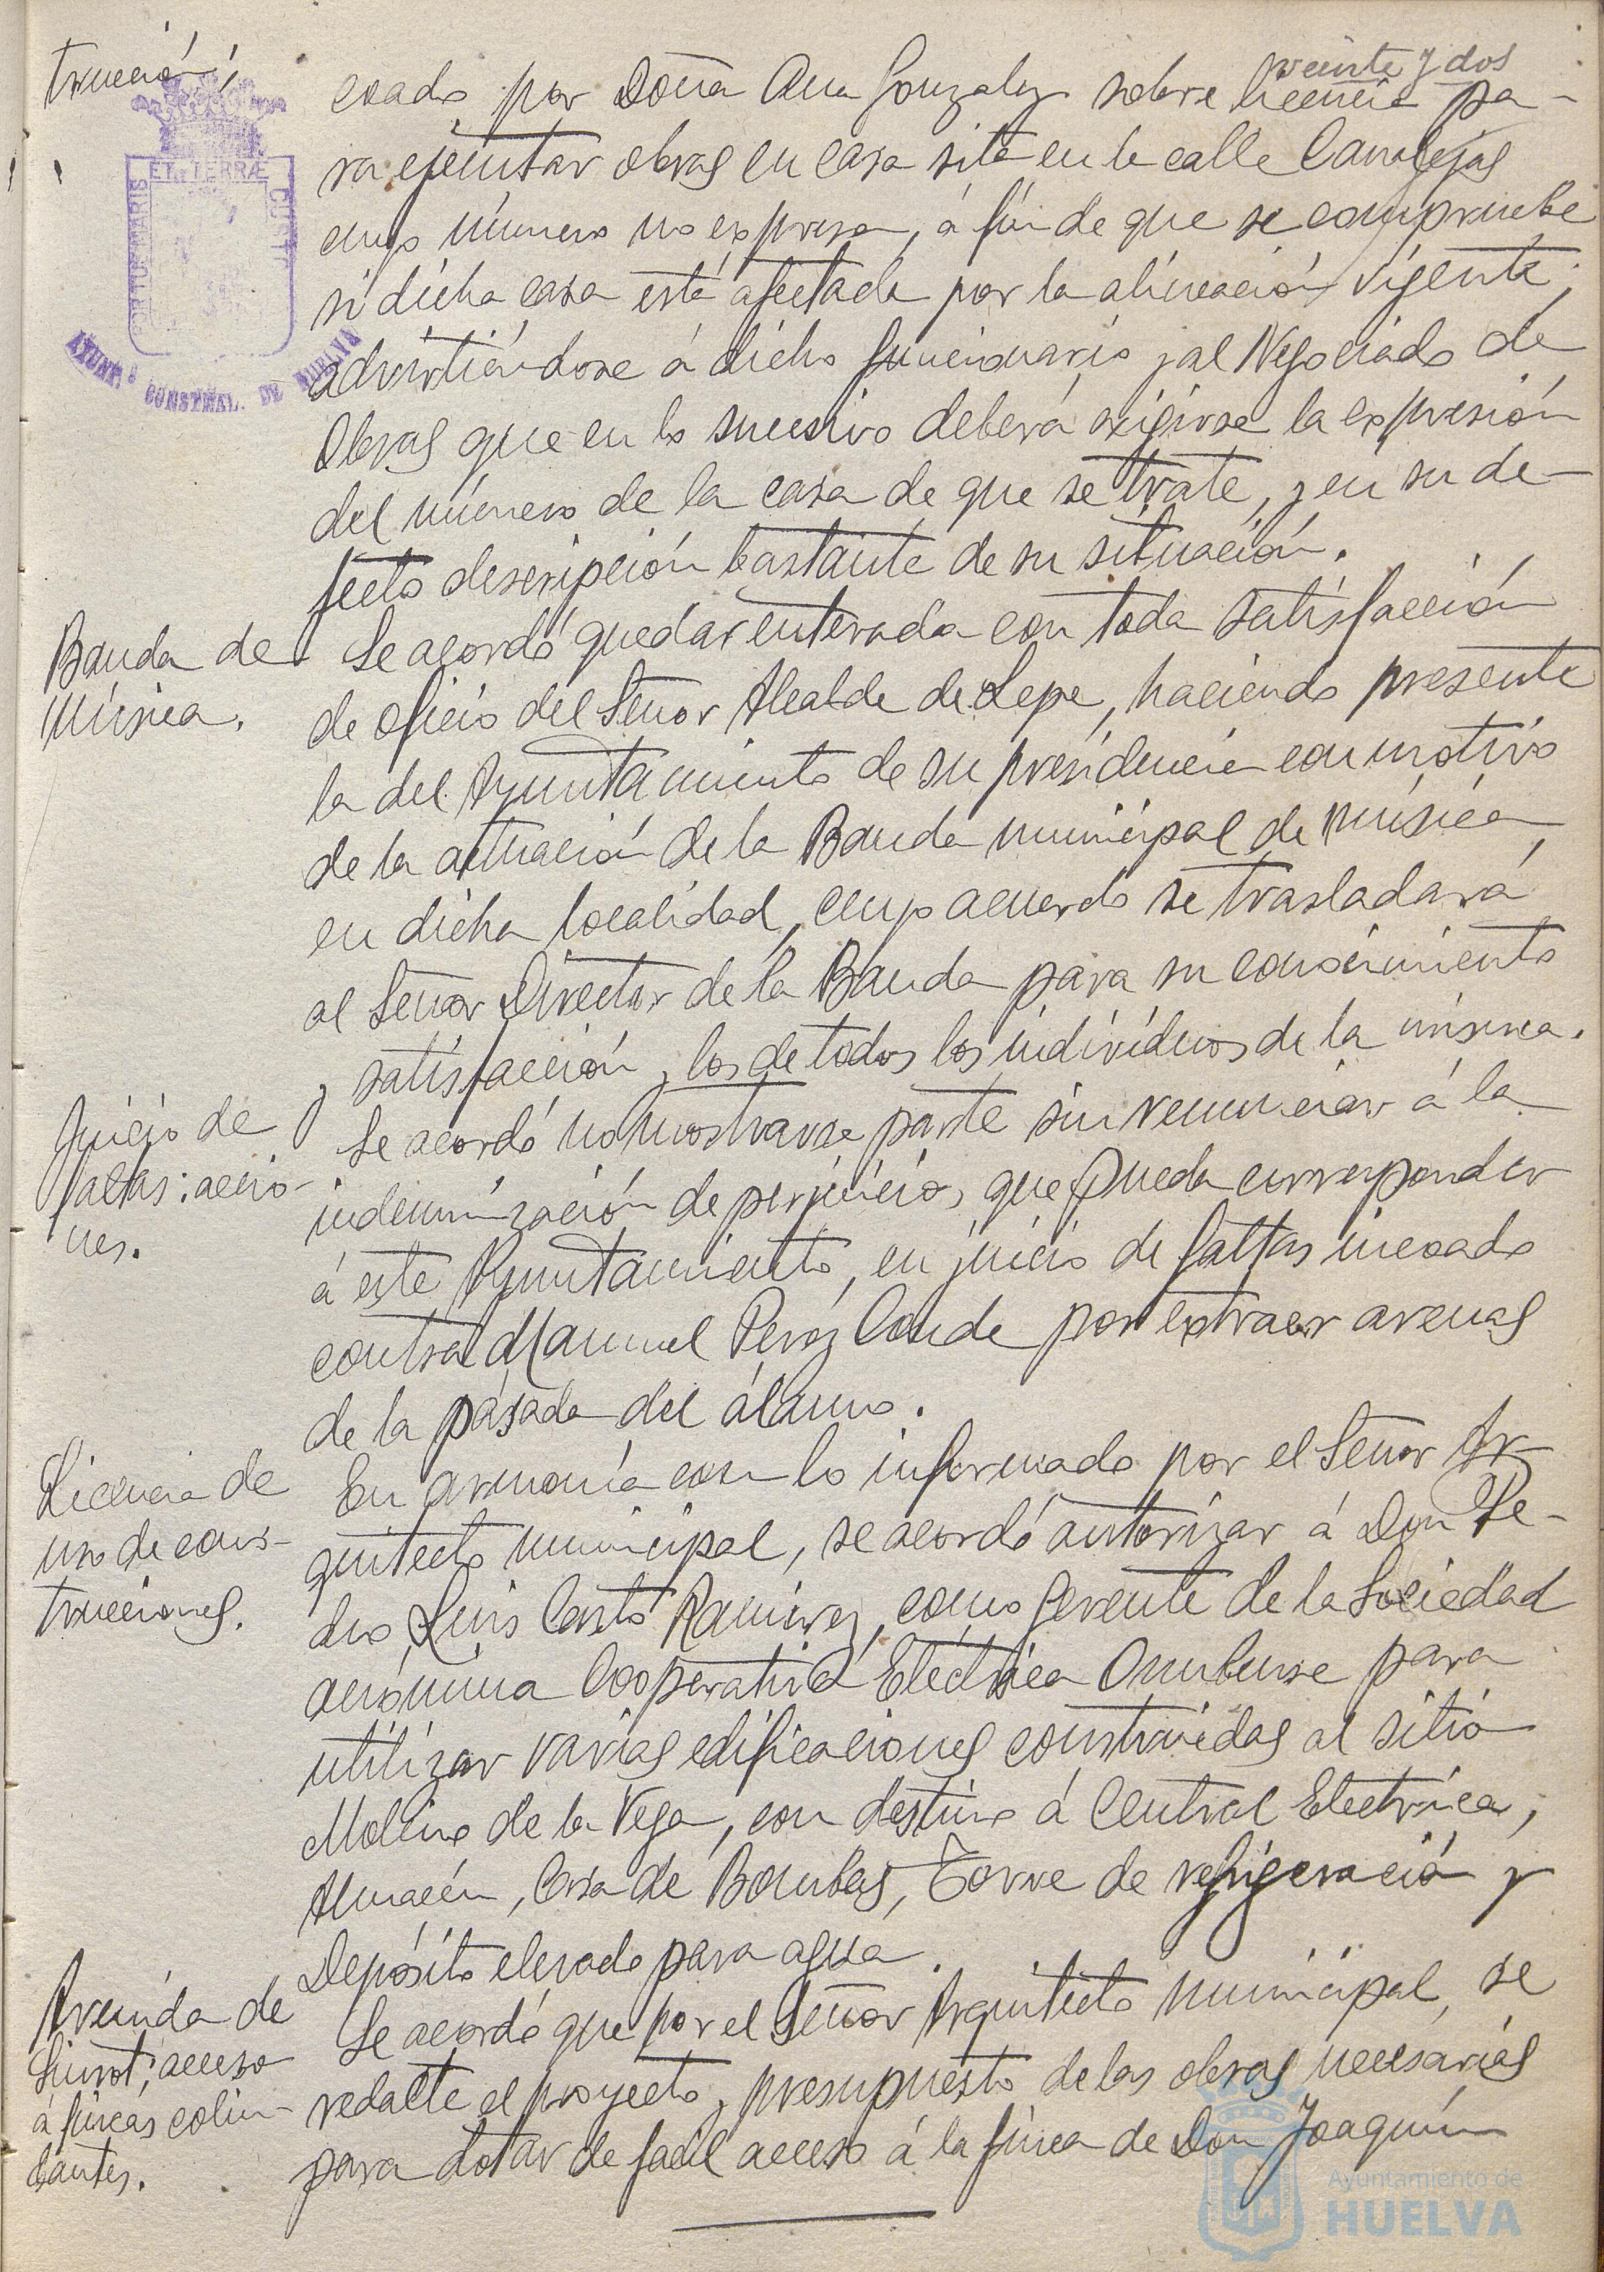 trucción;
veinte y dos
coado por Doña Ana Gonzalez sobre licencia pa-
ra ejecutar obras en casa sita en la calle Canalejas
cuyo número no expresa, á fin de que se compruebe
si dicha casa está afectada por la alineación vigente;
advirtiéndose á dicho funcionario y al Negociado de
Obras que en lo sucesivo deberá exigirse la expresión
del número de la casa de que se trate, y en su de-
fecto descripción bastante de su situación.
Banda de
Música.
Se acordó quedar enterada con toda satisfacción
de oficio del Señor Alcalde de Lepe, haciendo presente
la del Ayuntamiento de su presidencia con motivo
de la actuación de la Banda municipal de música,
en dicha localidad, cuyo acuerdo se trasladará
al Señor Director de la Banda para su conocimiento
y satisfacción y los de todos los individuos de la misma.
Juicio de
faltas: accio-
nes.
Se acordó no mostrarse parte sin renunciar á la
indemnización de perjuicios que pueda corresponder
á este Ayuntamiento, en juicio de faltas incoado
contra Manuel Peréz Conde por extraer arenas
de la pasada del álamo.
Licencia de
uso de cons-
trucciones.
En armonía con lo informado por el Señor Ar-
quitecto municipal, se acordó autorizar á Don Pe-
dro Luis Casto Ramirez, como gerente de la Sociedad
anónima Cooperativa Eléctrica Onubense para
utilizar varias edificaciones construidas al sitio
Molino de la Vega, con destino á Central Electrica,
Almacén, Casa de Bombas, Torre de refrigeración y
Depósito elevado para agua.
Avenida de
Siurot; acceso
á fincas colin-
dantes.
Se acordó que por el Señor Arquitecto municipal, se
redacte el proyecto y presupuesto de las obras necesarias
para dotar de facil acceso á la finca de Don Joaquín
ET TERRÆ
CUSTO
AYUNT.º CONSTNAL. DE HUELVA
Ayuntamiento de
HUELVA